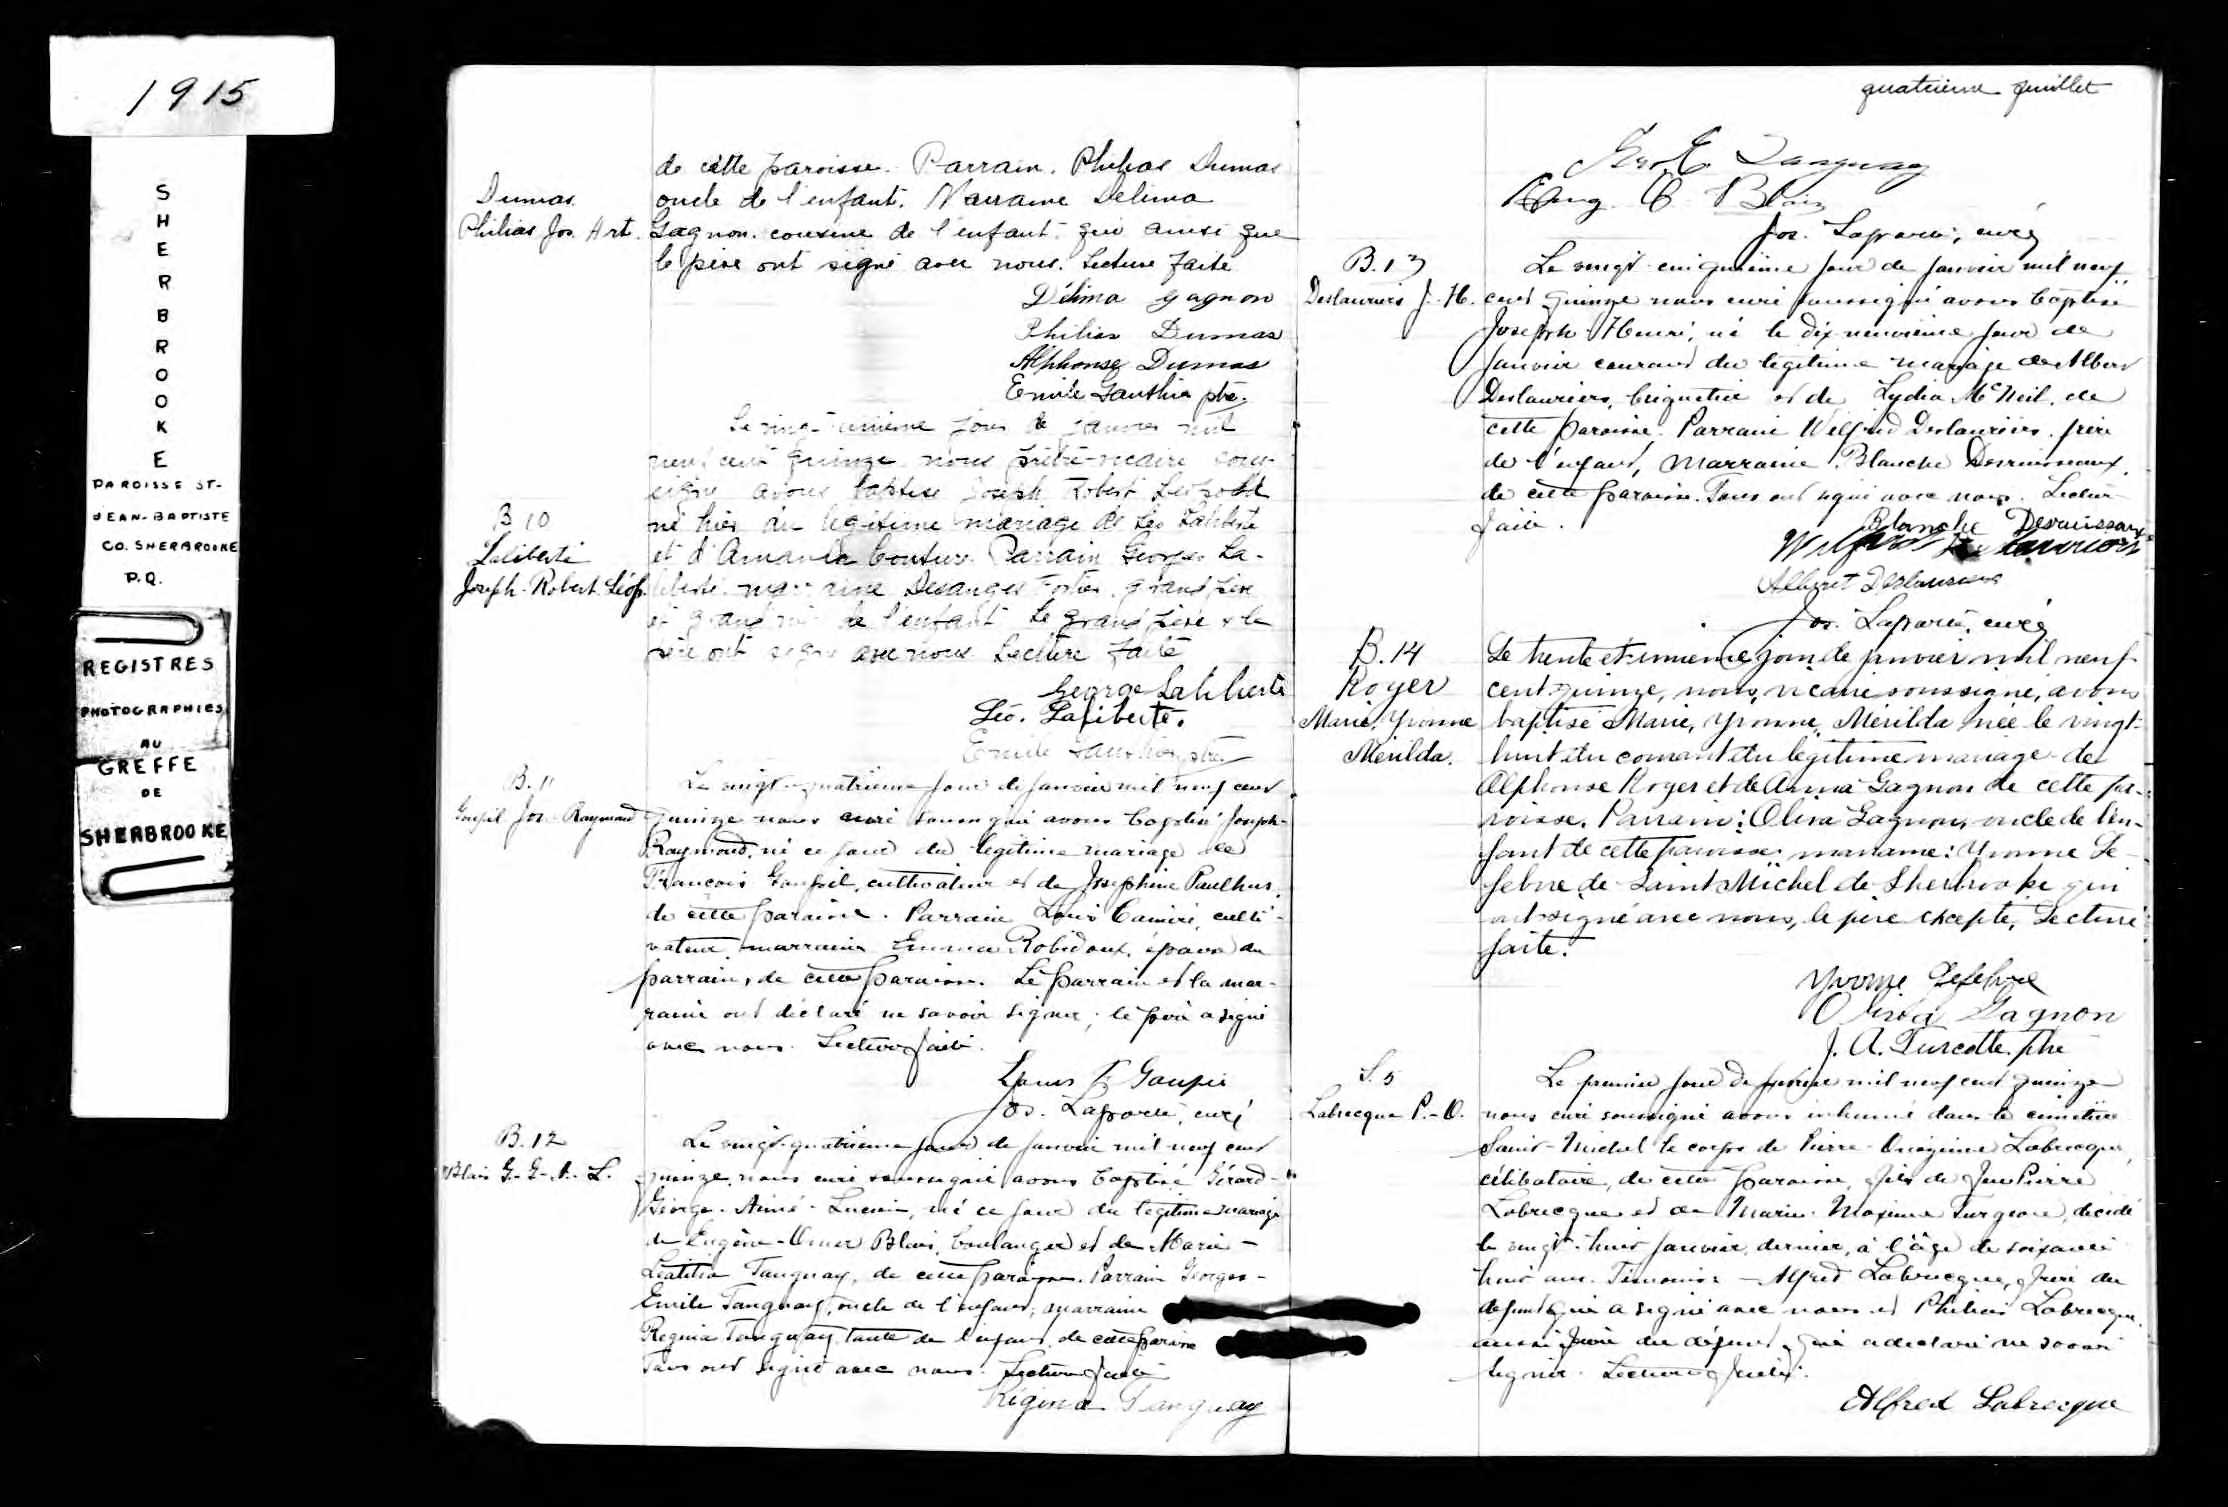 1915
SHERBROOKE
PAROISSE ST-
JEAN-BAPTISTE
CO. SHERBROOKE
P.Q.
REGISTRES
PHOTOGRAPHIES
AU
GREFFE
DE
SHERBROOKE
de cette paroisse. Parrain. Philias Dumas
Dumas
oncle de l'enfant. Marraine Delima
Philias Jos. Art.
Gagnon. cousine de l'enfant. qui ainsi que
le père ont signé avec nous. Lecture faite
Délima Gagnon
Philias Dumas
Alphonse Dumas
Emile Gauthier ptre.
Le vingt-unième jour de janvier mil
neuf cent quinze nous prêtre-vicaire sous-
signé avons baptisé Joseph Robert Léopold
B 10
né hier du légitime mariage de Léo Laliberté
Laliberté
et d'Amanda Couture. Parrain Georges La-
Joseph-Robert Léop.
liberté. marraine Desanges Fortier. grand père
et grand'mère de l'enfant Le grand père & le
père ont signé avec nous. Lecture faite
George Laliberté
Léo. Laliberté.
Emile Gauthier, ptre.
B. 11
Le vingt-quatrième jour de janvier mil neuf cent
Goupil Jos. Raymond
quinze nous curé soussigné avons baptisé Joseph-
Raymond, né ce jour du légitime mariage de
François Goupil, cultivateur et de Joséphine Paulhus,
de cette paroisse. Parrain Louis Camiré, culti-
vateur, marraine Emma Robidoux, épouse du
parrain, de cette paroisse. Le parrain et la mar-
raine ont déclaré ne savoir signer; le père a signé
avec nous. Lecture faite.
Goupil
Jos. Laporte, curé
B. 12
Le vingt-quatrième jour de janvier mil neuf cent
Blais G.-G.-A.-L.
quinze, nous curé soussigné avons baptisé Gérard-
George-Aimé-Lucien, né ce jour du légitime mariage
de Eugène-Omer Blais, boulanger et de Marie-
Léatitia Tanguay, de cette paroisse. Parrain Georges-
Emile Tanguay, oncle de l'enfant; marraine
Regina Tanguay, tante de l'enfant, de cette paroisse
Tous ont signé avec nous. Lecture faite
Régina Tanguay
quatrième feuillet
Geo. E. Tanguay
Eug. O. Blais
Jos. Laporte, curé
B. 13
Le vingt-cinquième jour de janvier mil neuf
Deslauriers J.-H.
cent quinze nous curé soussigné avons baptisé
Joseph-Henri, né le dix-neuvième jour de
janvier courant du légitime mariage de Albert
Deslauriers, briquetier et de Lydia McNeil, de
cette paroisse. Parrain Wilfrid Deslauriers, frère
de l'enfant, Marraine Blanche Desruisseaux,
de cette paroisse. Tous ont signé avec nous. Lecture
faite.
Blanche Desruisseaux
Wilfrid Deslauriers
Albert Deslauriers
Jos. Laporte, curé
B. 14
Le trente et unième jour de janvier mil neuf
Royer
cent quinze, nous, vicaire soussigné, avons
Marie, Yvonne
baptisé Marie, Yvonne, Mérilda née le vingt-
Mérilda.
huit du courant du légitime mariage de
Alphonse Royer et de Anna Gagnon de cette pa-
roisse. Parrain: Oliva Gagnon, oncle de l'en-
fant de cette paroisse; marraine: Yvonne Le-
febvre de Saint Michel de Sherbrooke qui
ont signé avec nous, le père excepté, Lecture
faite.
Yvonne Lefebvre
Oliva Gagnon
J. A. Turcotte. ptre
S. 5
Le premier jour de février mil neuf cent quinze
Labrecque P.-O.
nous curé soussigné avons inhumé dans le cimetière
Saint-Michel le corps de Pierre-Onézime Labrecque,
célibataire, de cette paroisse, fils de feu Pierre
Labrecque et de Marie-Maxime Turgeon, décédé
le vingt-huit janvier dernier, à l'âge de soixante
huit ans. Témoins - Alfred Labrecque, frère du
défunt qui a signé avec nous et Philias Labrecque,
aussi frère du défunt, qui a déclaré ne savoir
signer. Lecture faite.
Alfred Labrecque